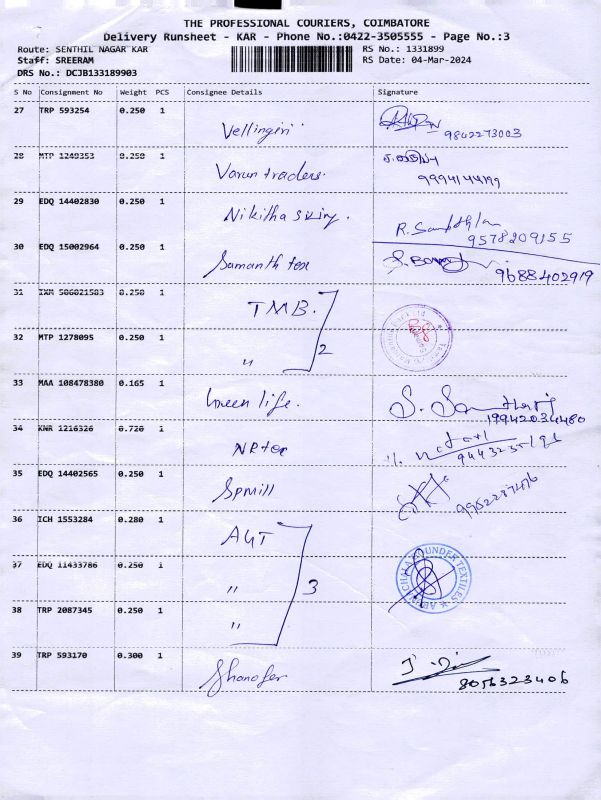 THE PROFESSIONAL COURIERS, COIMBATORE
Delivery Runsheet - KAR - Phone No.:0422-3505555 - Page No.:3
Route: SENTHIL NAGAR KAR RS No.: 1331899
Staff: SREERAM RS Date: 04-Mar-2024
DRS No.: DCJB133189903
S No Consignment No Weight PCS Consignee Details Signature
27 TRP 593254 0.250 1 Vellingiri 9842273003
28 MTP 1249353 0.250 1 Varun traders.
29 EDQ 14402830 0.250 1 Nikitha
R. 9578209155
30 EDQ 15002964 0.250 1 Samanth tex 9688402919
31 506021583 0.250 1 TMB.
32 MTP 1278095 0.250 1 " 2
33 MAA 108478380 0.165 1 Green life. S.
34 KNR 1216326 0.720 1 NR tex
35 EDQ 14402565 0.250 1 Spmill
36 ICH 1553284 0.280 1 AGT
37 EDQ 11433786 0.250 1 " 3 TEXTILES
38 TRP 2087345 0.250 1 "
39 TRP 593170 0.300 1 8056323406